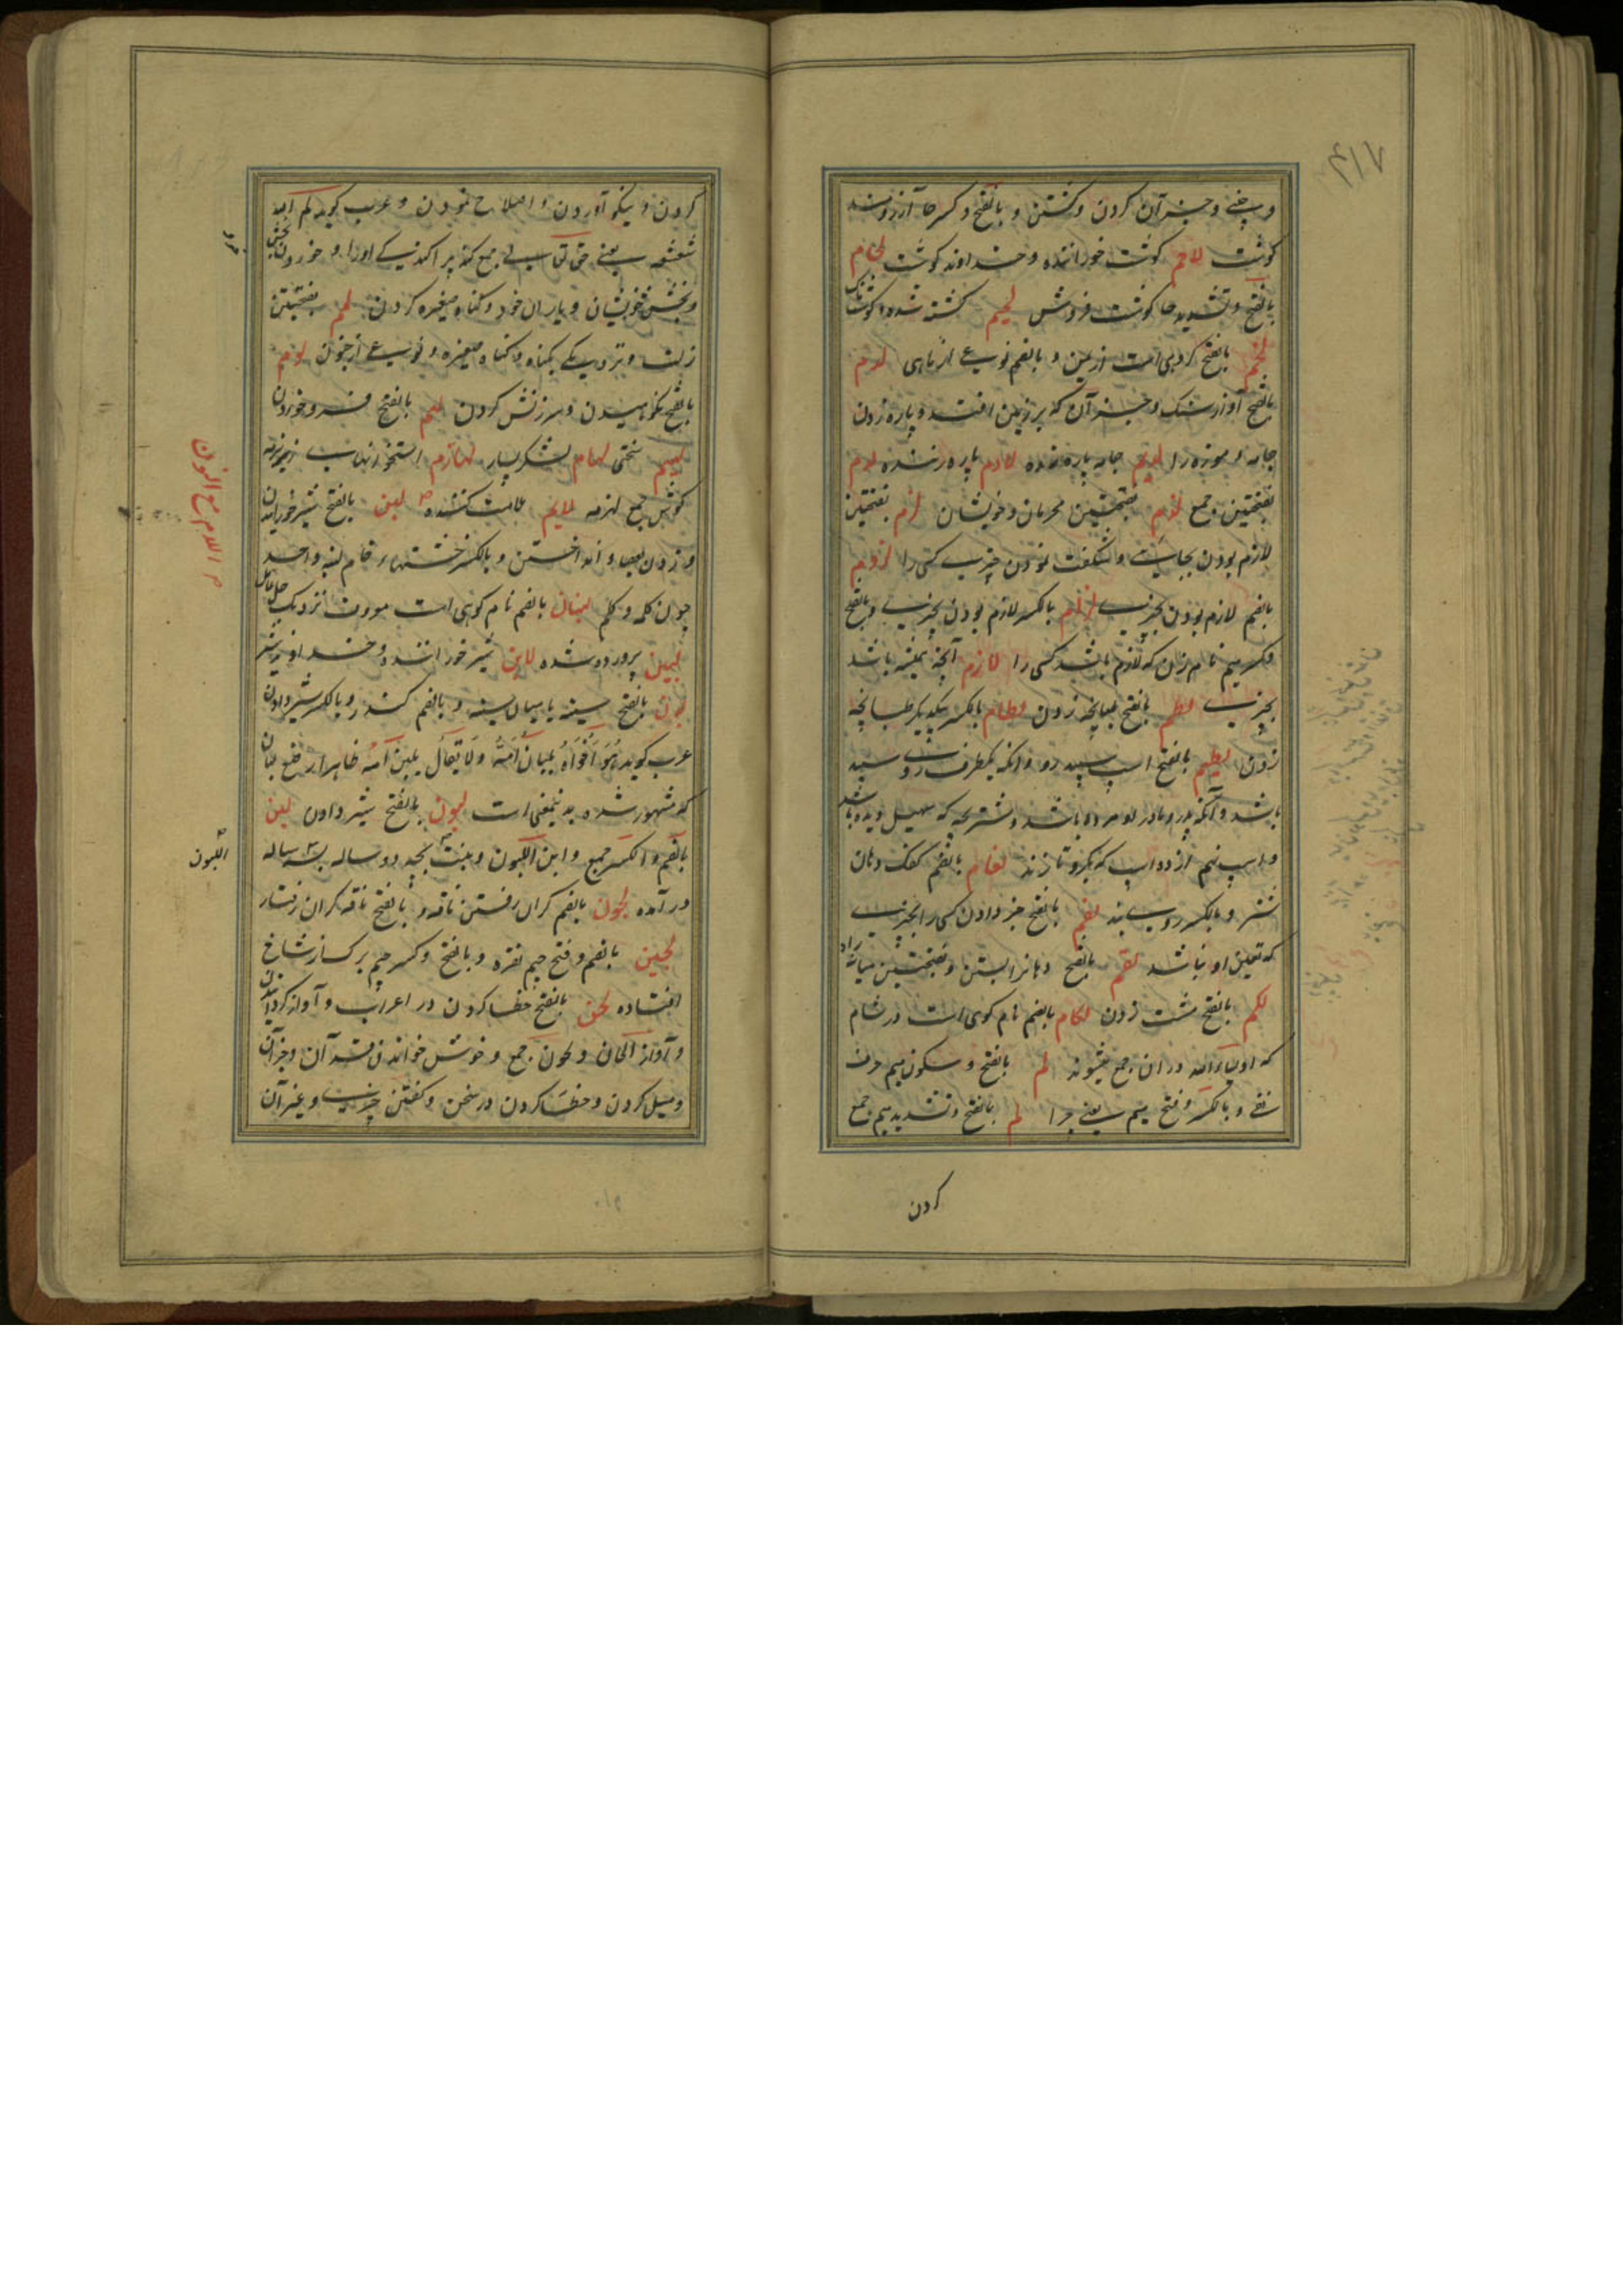 و چیزی و جز آن کردن و کشتن و بالفتح و کسر حا آرزومند
گوشت لاحم گوشت خوراننده و خداوند گوشت لحام
بالفتح و تشدید حا گوشت فروش لحیم کشته شده و گوشتناک
لخم بالفتح گروهی است از یمن و بالضم نوعی از ماهی لدم
بالفتح آواز سنگ و جز آن که بر زمین افتد و پاره زدن
جامه و موزه را لدیم جامه پاره زده لادم پاره زننده لدم
بفتحتین جمع لدم بفتحتین محرمان و خویشان لزم بفتحتین
لازم بودن بجایی و شگفت نمودن چیزی کسی را لزوم
بالضم لازم بودن بچیزی لزام بالکسر لازم بودن بچیزی و بالفتح
و کسر میم نام زن که لازم باشد کسی را لازم آنچه همیشه باشد
بچیزی لطم بالفتح طپانچه زدن لطام بالکسر یکدیگر طپانچه
زدن لطیم بالفتح اسپ سپید رو و آنکه یکطرف روی سپید
باشد و آنکه پدر و مادر او مرده باشد و شتر بچه که سهیل دیده باشد
و اسپ نهم از ده اسپ که بگرو تازند لغام بالضم کفک دهان
شتر و بالکسر روی بند لغم بالفتح خبر دادن کسی را بچیزی
که یقین او نباشد لقم بالفتح دهانرا بستن و بفتحتین میانه راه
لکم بالفتح مشت زدن لکام بالضم نام کوهی است در شام
که اولیاء الله در آن جمع میشوند لم بالفتح و سکون میم حرف
نفی و بالکسر و فتح میم یعنی چرا لم بالفتح و تشدید میم جمع
کردن
کردن و نیکو آوردن و اصلاح نمودن و عرب گوید لم الله
شعثه یعنی حق تعالی جمع کند پراکندگی او را و خوردن بخش
و بخش خویشان و یاران خود و گناه صغیره کردن لمم بفتحتین
زلت و نزدیکی بگناه و گناه صغیره و نوعی از جنون لوم
بالفتح نکوهیدن و سرزنش کردن لهم بالفتح فرو خوردن
لهیم سختی لهام لشکر بسیار لهازم استخوانهای زیر نرمه
گوش جمع لهزمه لایم ملامت کننده لبن بالفتح شیر خورانیدن
و زدن بعصا و انداختن و بالکسر خشتهاء خام لبنه واحد
چون کلمه و کلم لبنان بالضم نام کوهی است نزدیک جبل عامل
لبین پرورده شده لابن شیر خوراننده و خداوند شیر
لبان بالفتح سینه یا میان سینه و بالضم کندر و بالکسر شیر دادن
عرب گوید هو اخواه بلبان امه ولا یقال بلبن امه ظاهرا رضع لبان
که مشهور شده بدینمعنی است لبون بالفتح شیر دادن لبن
بالضم و الکسر جمع و ابن اللبون و بنت بچه دو ساله بسه ساله
در آمده لجون بالضم گران رفتن ناقه و بالفتح ناقه گران رفتار
لجین بالضم و فتح جیم نقره و بالفتح و کسر جیم برگ از شاخ
افتاده لحن بالفتح خطا کردن در اعراب و آواز گردانیدن
و آواز الحان و لحون جمع و خوش خواندن قرآن و جز آن
و میل کردن و خطا کردن در سخن و گفتن چیزی و غیر آن
م اللام مع النون
اللبون